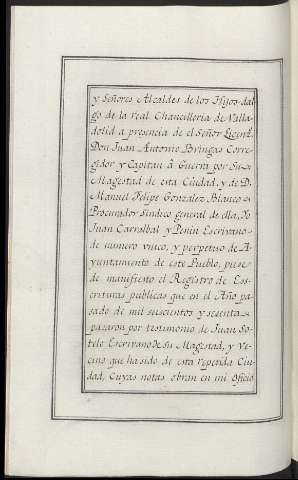 y Señores Alcaldes de los Hijos-dal
go de la real Chancilleria de Valla-
dolid a presencia de el Señor Licenz.
Don Juan Antonio Bringas Corre-
gidor y Capitan â Guerra por Su
Magestad de esta Ciudad, y de D.
Manuel Felipe Gonzalez Blanco
Procurador Sindico general de ella, Yo
Juan Carralbal y Penin Escrivano
de numero unico, y perpetuo de A-
yuntamiento de este Pueblo, puse
de manifiesto el Registro de Es-
crituras publicas que en el Año pa-
sado de mil suscientos y sesenta
pasaron por testimonio de Juan So-
telo Escrivano de su Magestad, y Ve-
cino que ha sido de esta repetida Ciu-
dad, Cuyas notas obran en mi Oficio